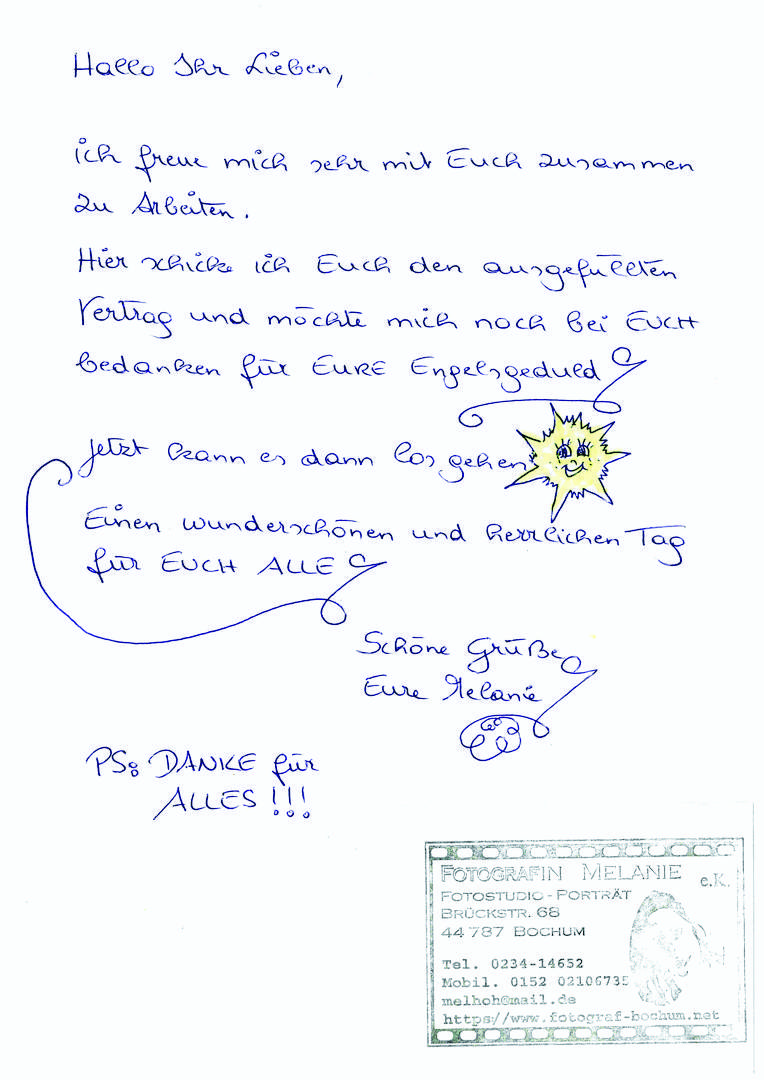 Hallo Ihr Lieben,
ich freue mich sehr mit Euch zusammen
zu Arbeiten.
Hier schicke ich Euch den ausgefüllten
Vertrag und möchte mich noch bei EUCH
bedanken für EURE Engelsgeduld!
Jetzt kann es dann los gehen
Einen wunderschönen und herrlichen Tag
für EUCH ALLE!
Schöne Grüße
Eure Melanie
PS: DANKE für
ALLES!!!
FOTOGRAFIN MELANIE e.K.
FOTOSTUDIO-PORTRÄT
BRÜCKSTR. 68
44787 BOCHUM
Tel. 0234-14652
Mobil. 0152 02106735
melhoh@mail.de
https//www.fotograf-bochum.net